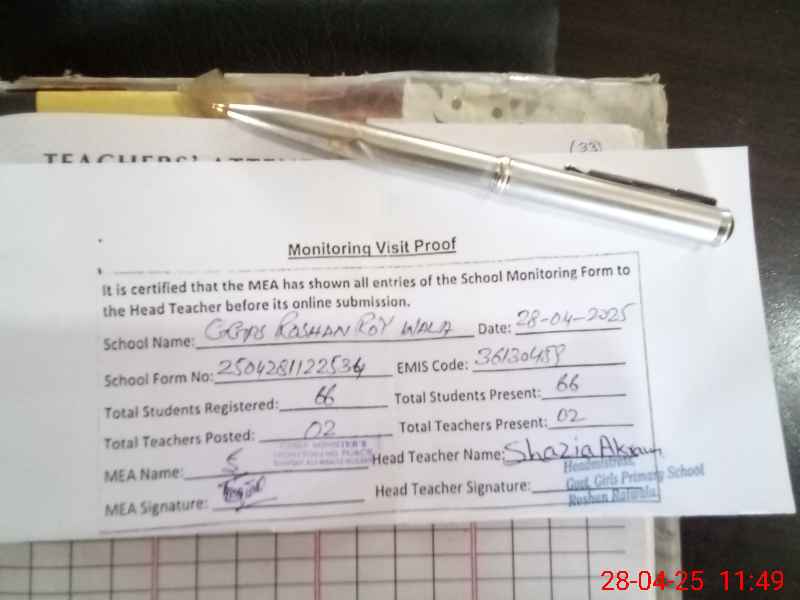 (33)
TEACHERS' ATTEN
Monitoring Visit Proof
It is certified that the MEA has shown all entries of the School Monitoring Form to
the Head Teacher before its online submission.
School Name: GGPS ROSHAN ROY WALA Date: 28-04-2025
School Form No: 2504281122534 EMIS Code: 36130459
Total Students Registered: 66 Total Students Present: 66
Total Teachers Posted: 02 Total Teachers Present: 02
MEA Name: Head Teacher Name: Shazia Akram
Headmistress
MEA Signature: Head Teacher Signature:
Govt. Girls Primary School
Roshan
28-04-25 11:49